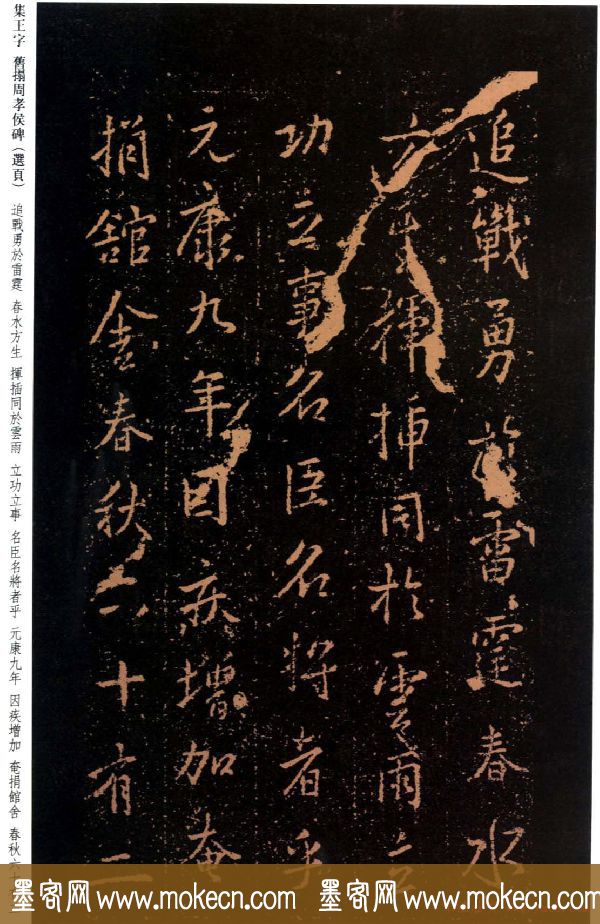 集王字 舊搨周孝侯碑（選頁） 追戰勇於雷霆 春水方生 揮插同於雲雨 立功立事 名臣名將者乎 元康九年 因疾增加 奄捐館舍 春秋六十
追戰勇於雷霆春水
方生揮插同於雲雨立
功立事名臣名將者乎
元康九年因疾增加奄
捐館舍春秋六十有二
墨客网 www.mokecn.com 墨客网 www.mokecn.com